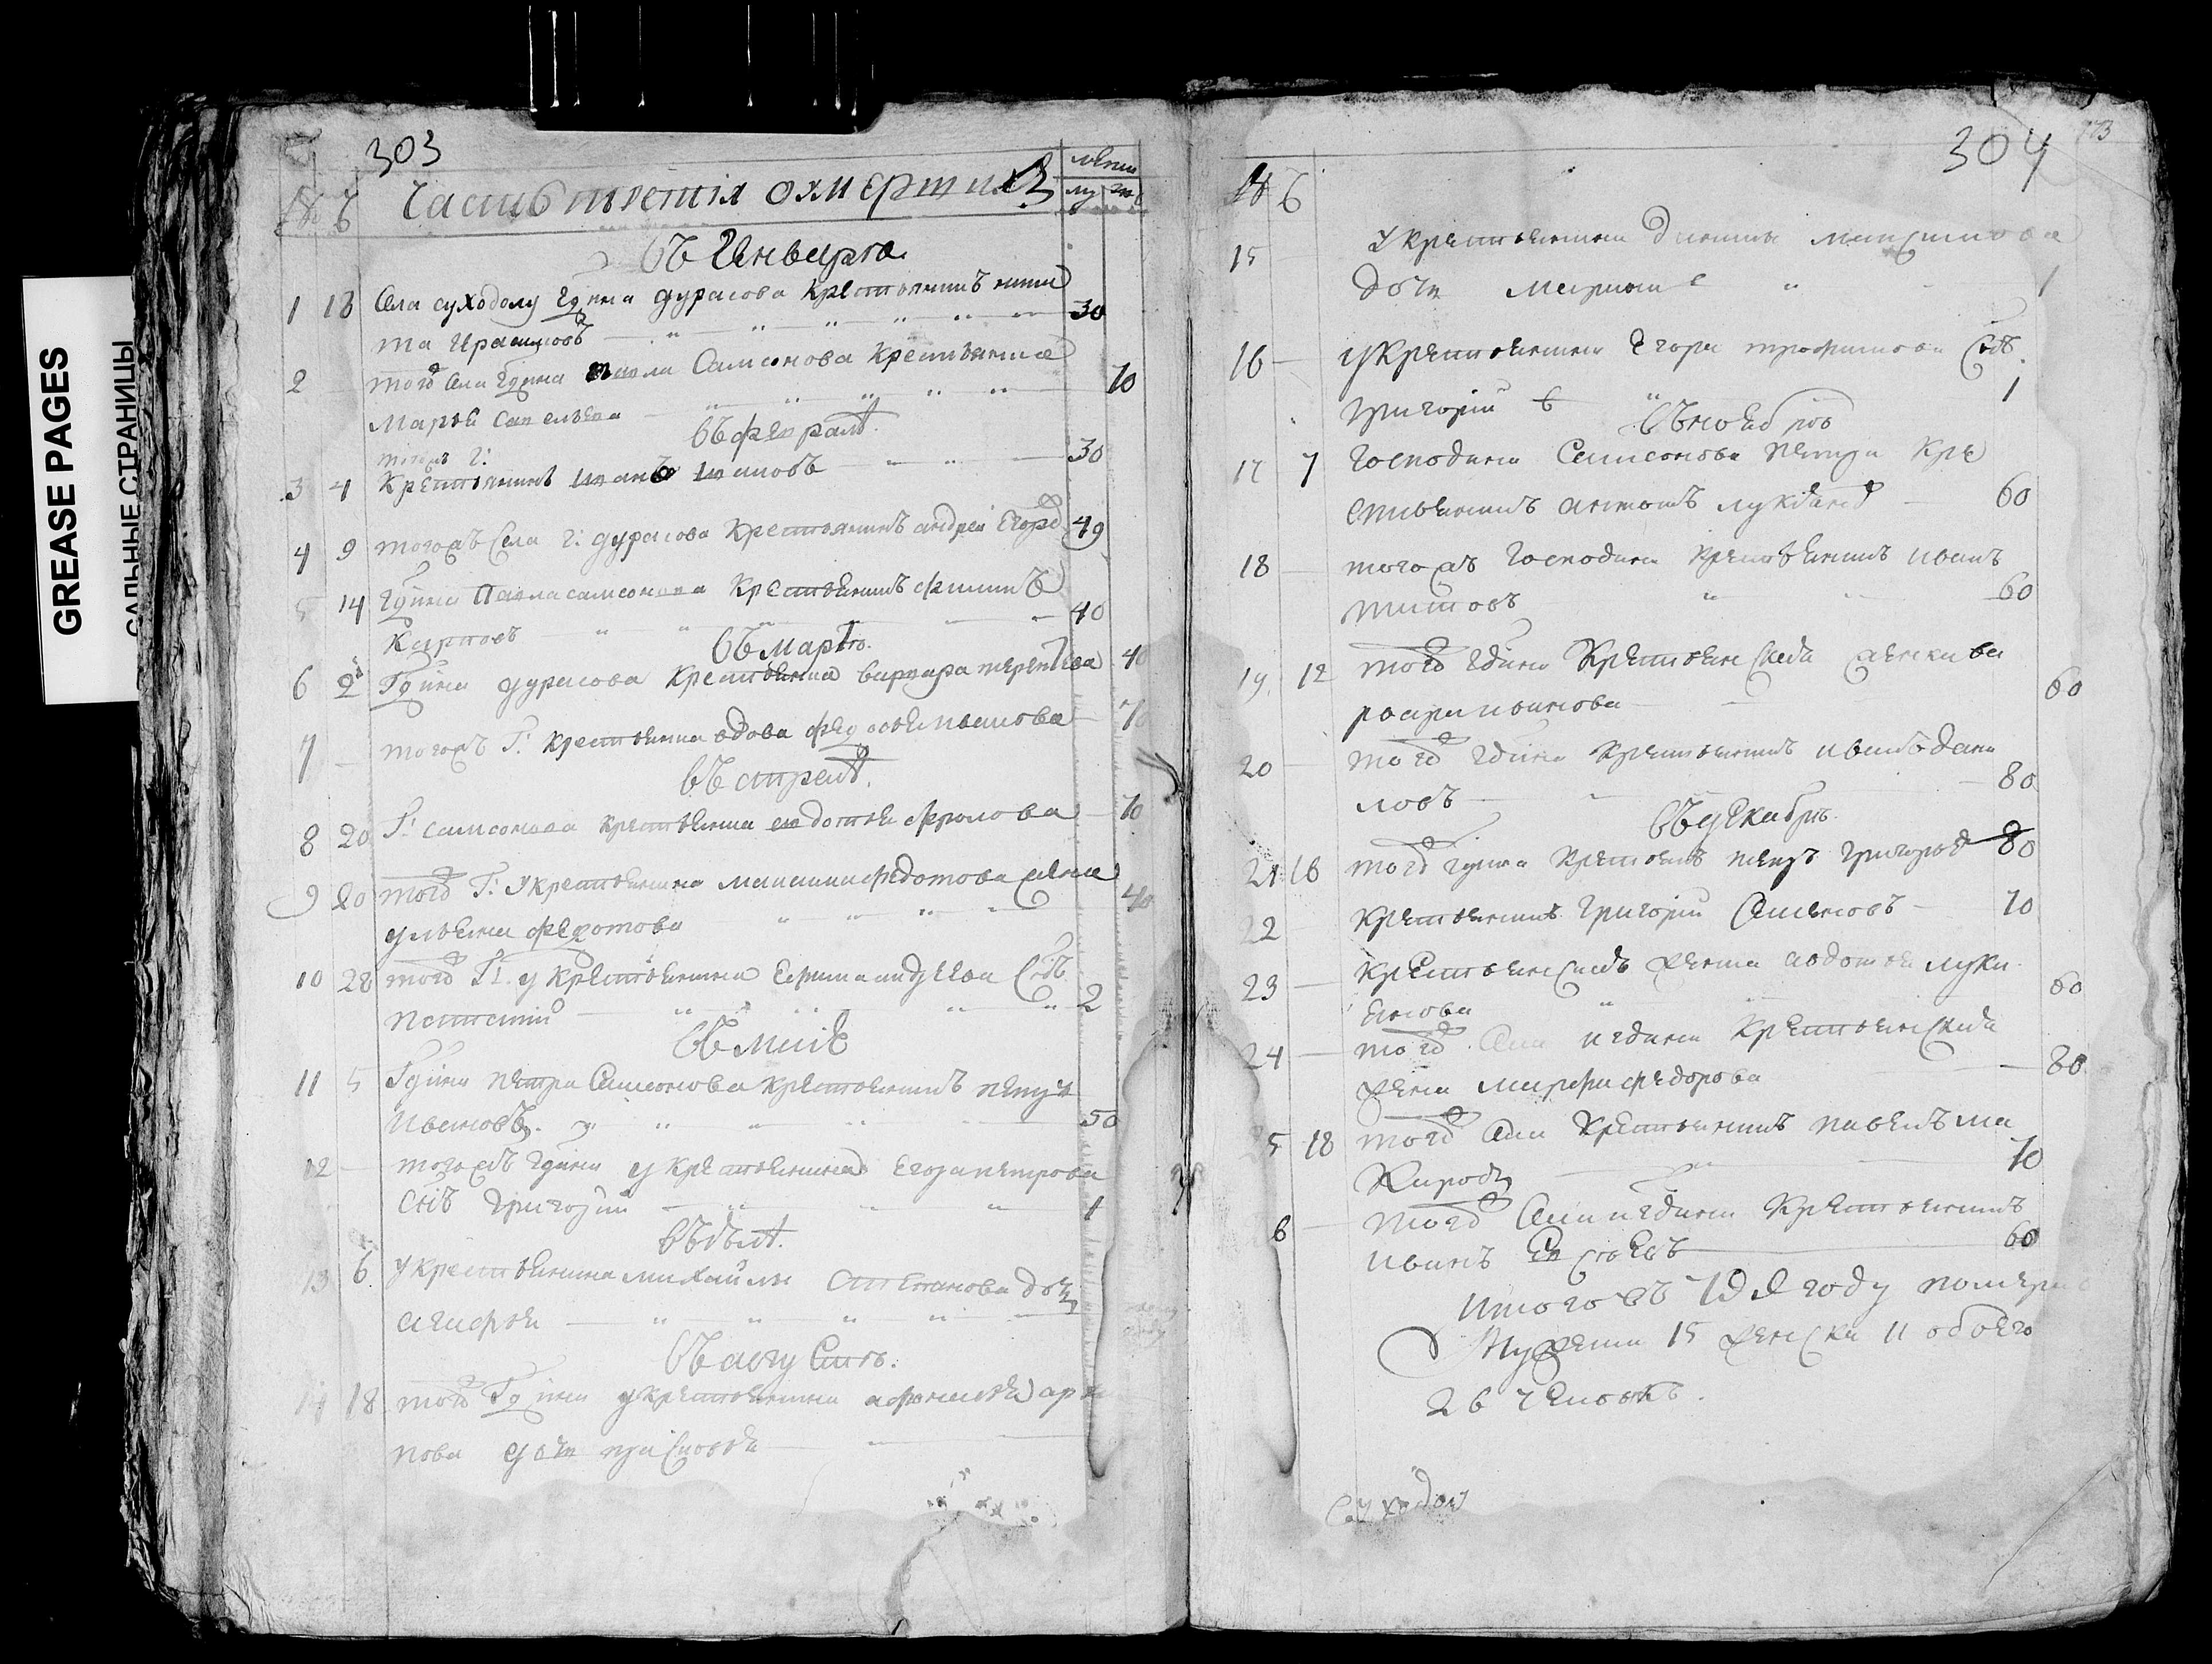 GREASE PAGES
САЛЬНЫЕ СТРАНИЦЫ
303
лета
№ Ч Часть третія о умершихъ му же
въ Генваре
1 18 Села суходолу Гдина дурасова крестьянинъ ники
та Герасимовъ 30
2 тогожъ села Гдина павла Самсонова крестьянка
Марья савельева 70
въ феврале
тогожъ Г:
3 4 крестьянинъ иванъ ивановъ 30
4 9 тогожъ села Г: дурасова крестьянинъ андрей Егоро 49
5 14 Гдина Павла самсонова крестьянинъ филипъ
Карповъ 40
въ марте
6 2 Гдина дурасова крестьянка варвара терентева 40
7 тогожъ Г: крестьянка вдова федосья иванова 70
въ апреле
8 20 Г: самсонова крестьянка авдотья фролова 70
9 20 тогожъ Г: у крестьянина федотова жена
ульяна федотова 40
10 28 тогожъ Г: у крестьянина Ефима андреева снъ
2
въ маіе
11 5 Гдина петра Самсонова крестьянинъ петръ
Ивановъ 50
12 тогожъ Гдина у крестьянина Егора петрова
снъ григорий 1
въ июле
13 6 у крестьянина михайлы Степанова дочь
агафья
въ августе
14 18 тогожъ Гдина у крестьянина афанасья архи
пова дочь прасковья
304
173
№ Ч
15 у крестьянина максимова
дочь Марья 1
16 у крестьянина Егора трофимова снъ
григорій 1
въ ноябре
17 7 Господина Самсонова петра кре
стьянинъ антонъ лукьяновъ 60
18 тогожъ Господина крестьянинъ иванъ
титовъ 60
19 12 тогожъ Гдина крестьянская женка ва
рвара иванова 60
20 тогожъ Гдина крестьянинъ иванъ дани
ловъ 80
въ декабре
21 16 тогожъ Гдина крестьянинъ петръ григорьевъ 80
22 крестьянинъ григорій Семеновъ 70
23 крестьянская жена авдотья лукья
нова 60
24 тогожъ села и гдина крестьянская
жена марфа федорова 80
5 18 тогожъ села крестьянинъ павелъ ма
каровъ 70
6 тогожъ села и гдина крестьянинъ
иванъ 60
итого въ году померло
мужеска 15 женска 11 обоего
26 человекъ.
Суходол